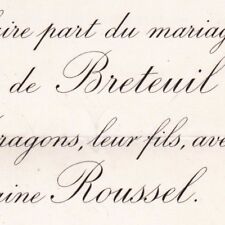 aire part du mariag
de Breteuil
ragons, leur fils, ave
aine Roussel.